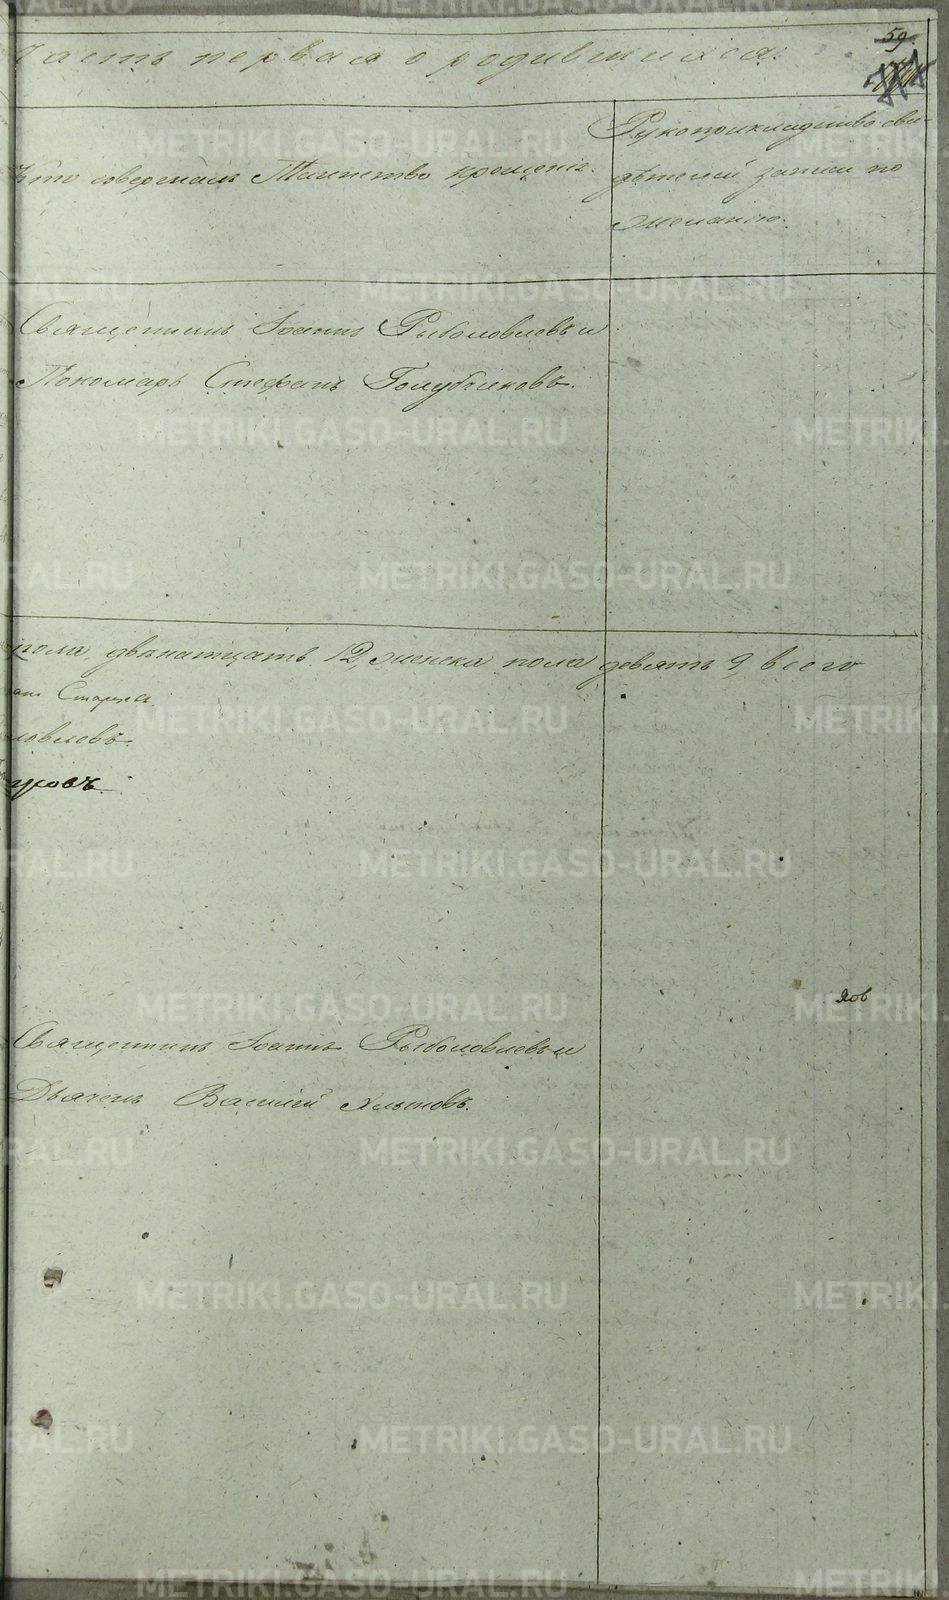 59.
Часть первая о родившихся.
Кто совершалъ Таинство крещенiя.
Рукоприкладство сви-
дѣтелей записи по
желанiю.
Священникъ Iоаннъ Рыболовлевъ и
Пономарь Стефанъ Голубчиковъ.
пола двенатцать 12, женска пола девять 9, всего
Старцевъ
ловлевъ.
ковъ.
Священникъ Iоаннъ Рыболовлевъ и
Дьячекъ Василiй Хлыновъ.
METRIKI.GASO-URAL.RU